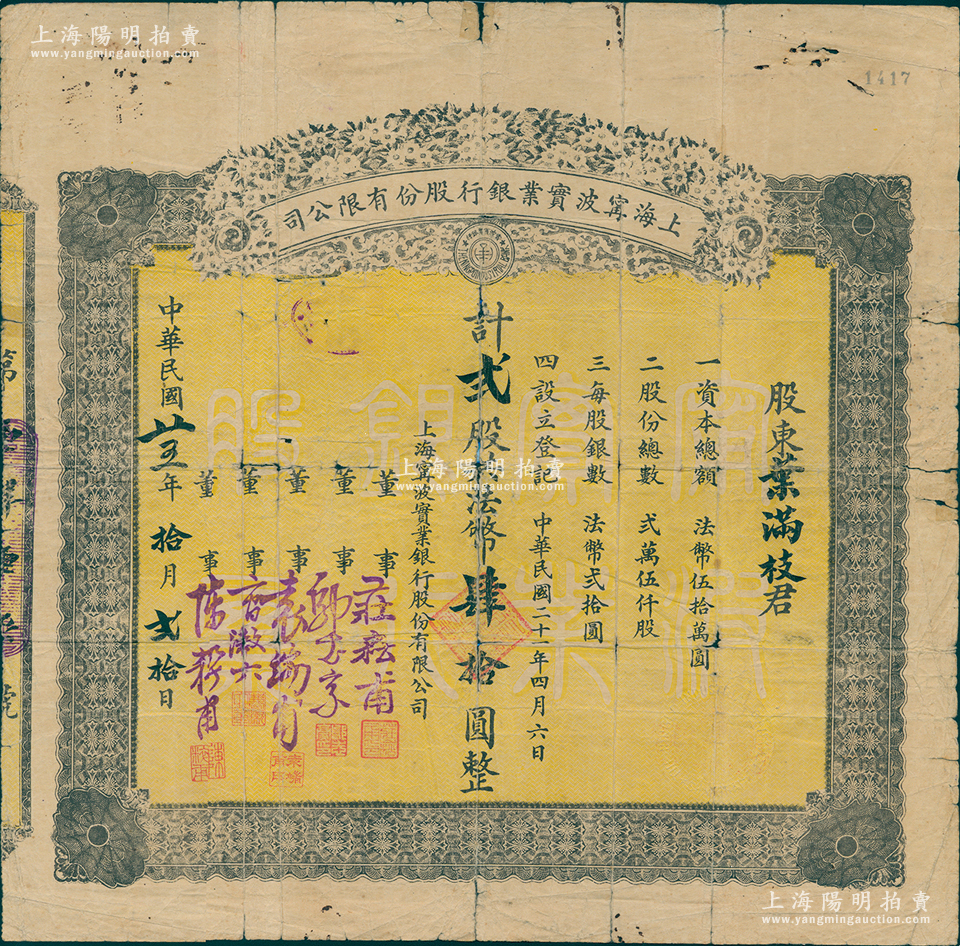 上海陽明拍賣
www.yangmingauction.com
1417
上海甯波實業銀行股份有限公司
股東葉滿枝君
一資本總額 法幣伍拾萬圓
二股份總數 弍萬伍仟股
三每股銀數 法幣弍拾圓
四設立登記 中華民國二十一年四月六日
計弍股法幣肆拾圓整
上海甯波實業銀行股份有限公司
董事 莊崧甫
董事
董事 袁端甫
董事
董事
中華民國廿五年拾月弍拾日
第
號
上海陽明拍賣
www.yangmingauction.com
上海陽明拍賣
www.yangmingauction.com